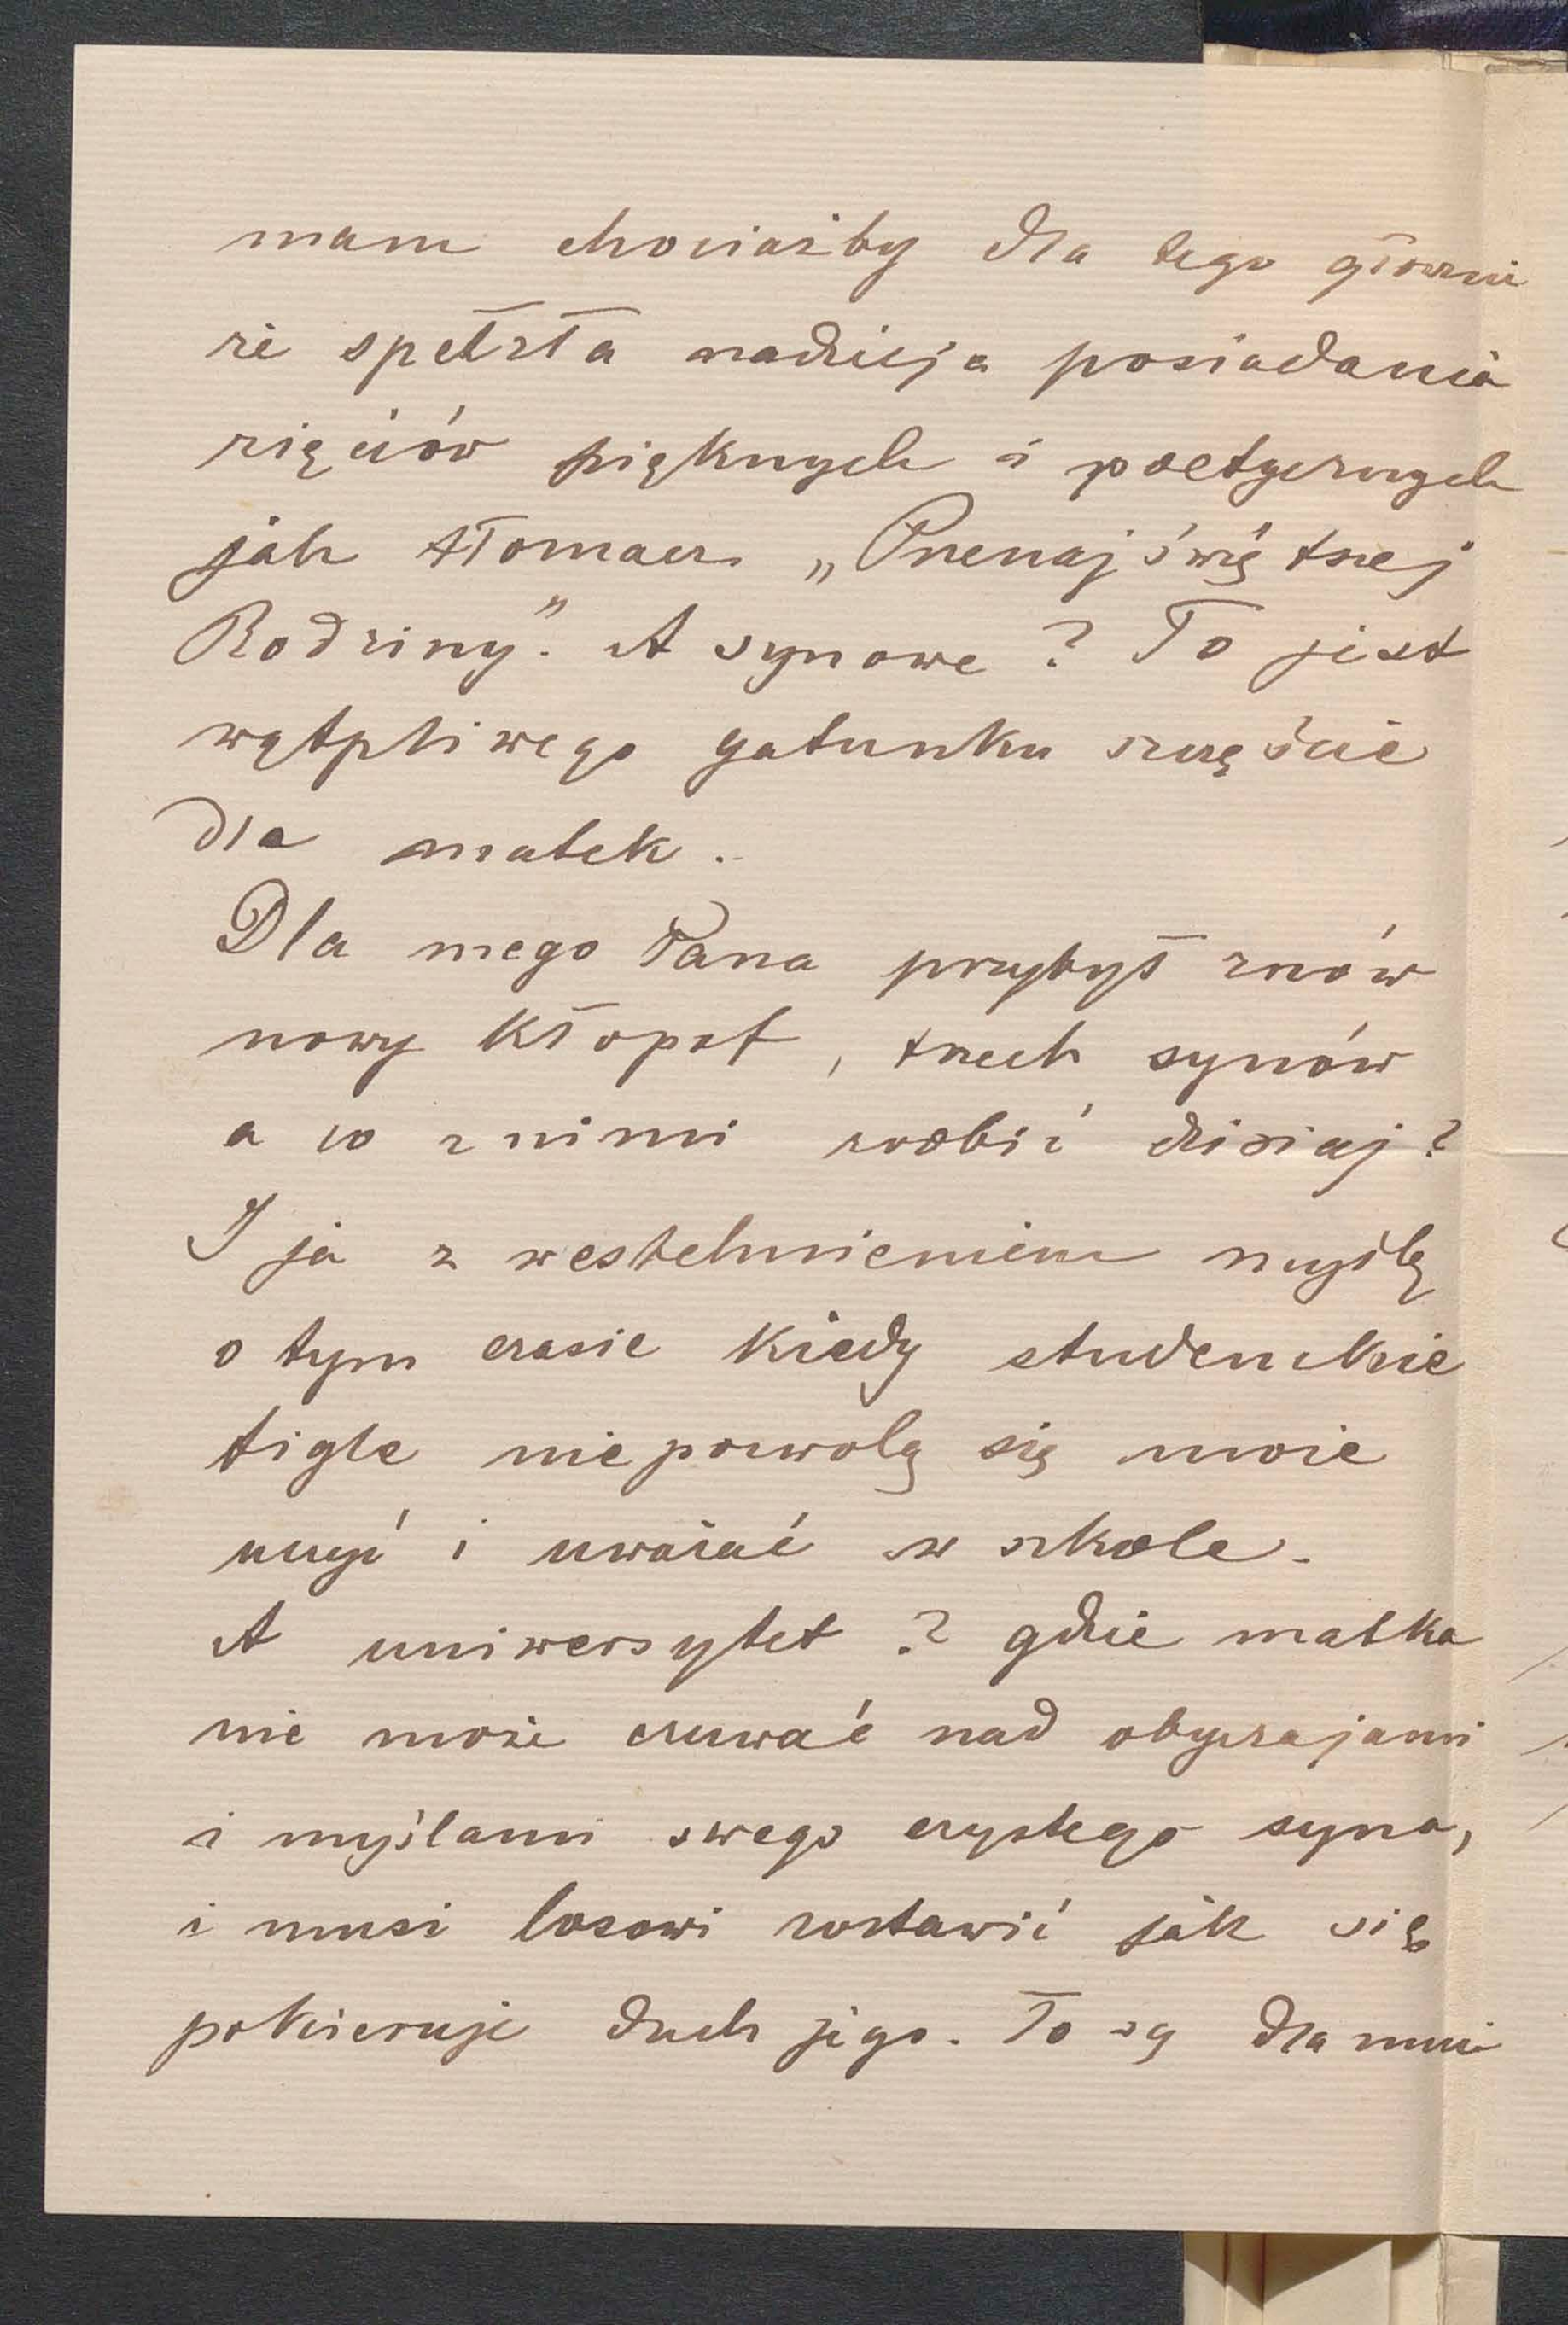 mam chociażby dla tego głównie
że spełzła nadzieja posiadania
zięciów pięknych i poetycznych
jak tłomacz „Przenajświętszej
Rodziny”. A synowe? To jest
wątpliwego gatunku szczęście
dla matek.
Dla mego Pana przybył znów
nowy kłopot, trzech synów
a co z nimi robić dzisiaj?
I ja z westchnieniem myślę
o tym czasie kiedy studenckie
figle nie pozwolą się może
uczyć i uważać w szkole.
A uniwersytet? gdzie matka
nie może czuwać nad obyczajami
i myślami swego czystego syna,
i musi losowi zostawić jak się
pokieruje duch jego. To są dla mnie